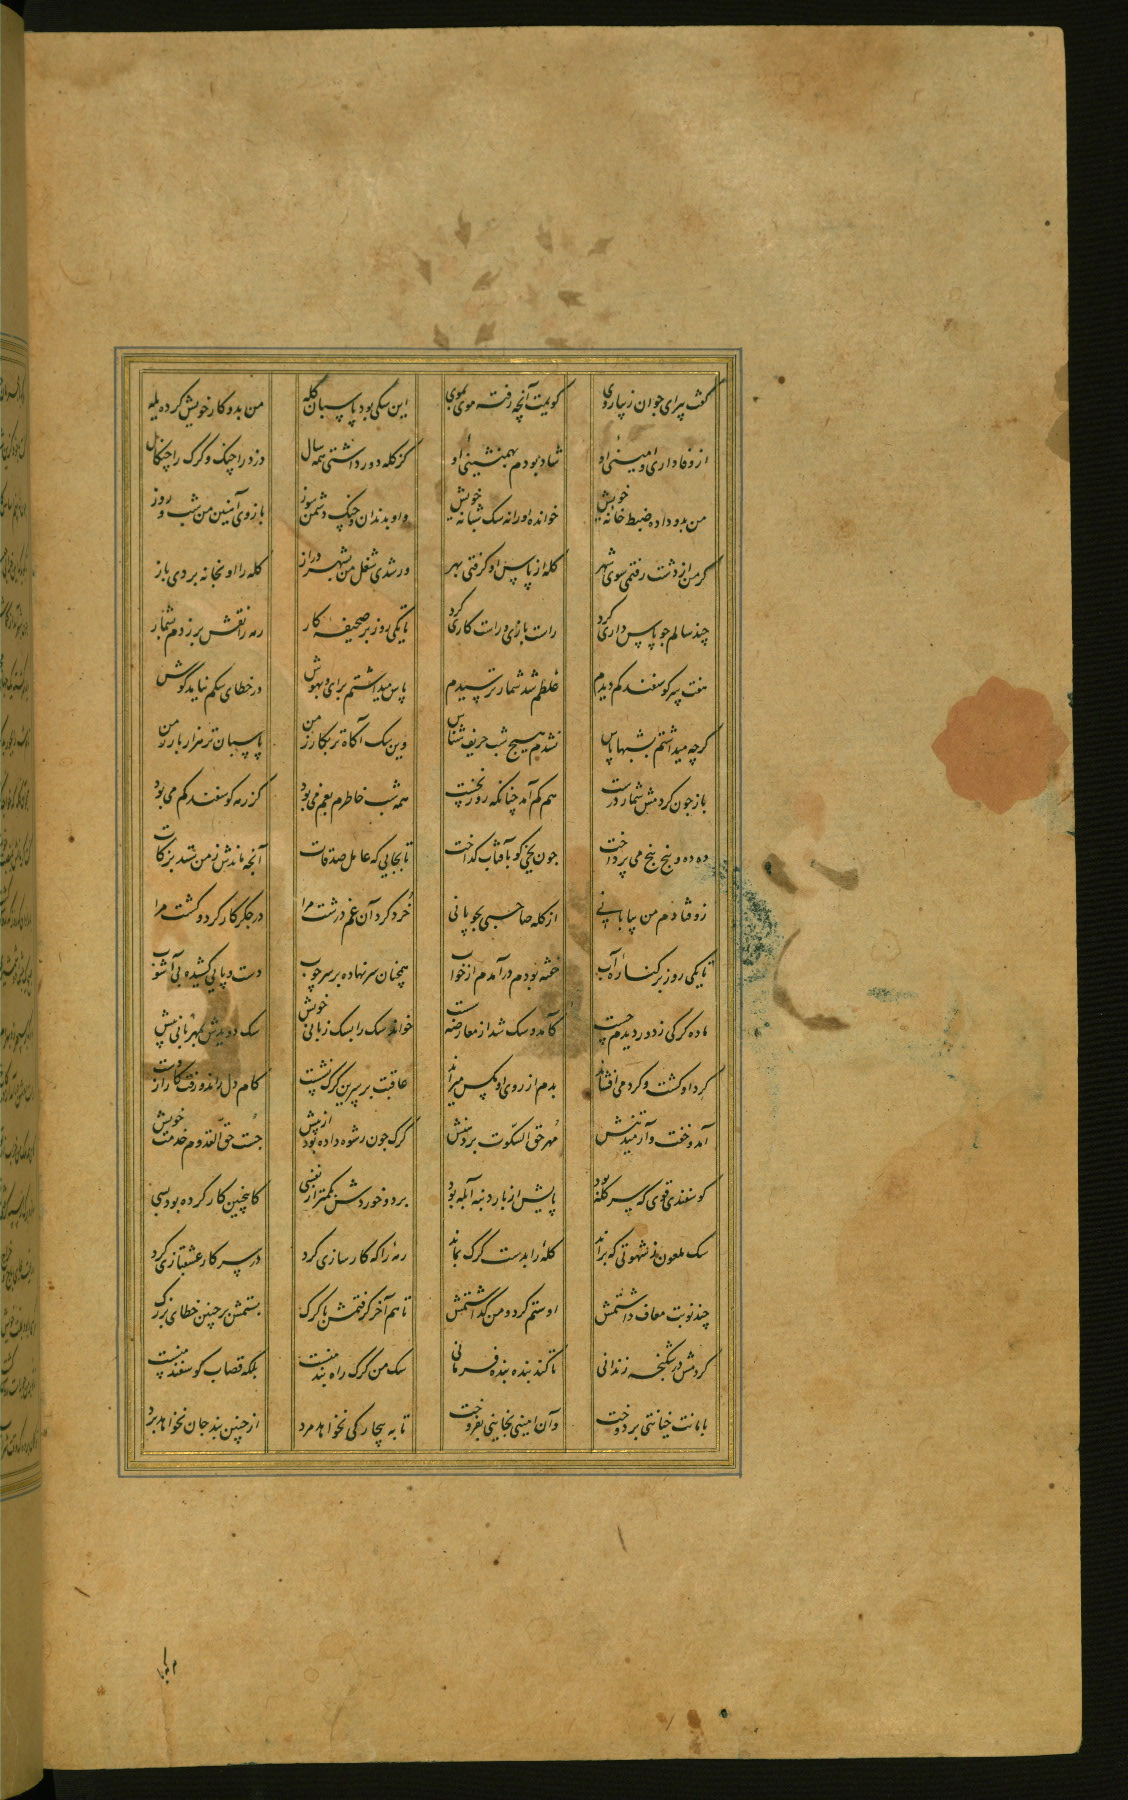 گفت پیر ای جوان زیباروی گویمت آنچه رفت موی بموی این سگی بود پاسبان گله من بدو کار خویش کرده یله
از وفاداری و امینی او شاد بودم بهمنشینی او کز گله دور داشتی همه سال دزد را چنگ و گرگ را چنگال
من بدو داده ضبط خانه خویش خوانده او را نه سگ شبانه خویش واو بدندان و چنگ دشمن سوز بازوی آهنین من شب و روز
گر من از دشت رفتمی سوی شهر گله از پاس او گرفتی بهر ور شدی شغل من بشهر دراز گله را او بخانه بردی باز
چند سالم چو پاس داری کرد راست بازی و راست کاری کرد تا یکی روز بر صحیفه کار رمه را نقش بر زدم شمار
هفت سر گوسفند کم دیدم غلطم شد شمار ترسیدم پاس میداشتم برای و بهوش در خطای سگم نیامد گوش
گرچه میداشتم بشبها پاس نشدم هیچ شب حریف شناس وین سگ آگاه تر بکار ز من پاسبان تر هزار بار ز من
باز چون کردمش شمار درست هم کم آمد چنانکه روز نخست همه شب خاطرم بغم می بود کز رمه گوسفند کم می بود
ده ده و پنج پنج می پرداخت چون یخی کو بآفتاب گداخت تا بجایی که عامل صدقات آنچه ماندش ز من ستد بزکات
زو فتادم من بیابانی از گله صاحبی بچوپانی خرد کرد آن غم درشت مرا در جگر کار کرد و کشت مرا
تا یکی روز بر کناره آب خفته بودم درآمدم از خواب همچنان سر نهاده بر سر چوب دست و پایی کشیده بی آشوب
ماده گرگی ز دور دیدم چست کامد و سگ شد از معارضه سست خواند سگ را بسگ زبانی خویش سگ دویدش بمهربانی پیش
گرد او گشت و گرد می افشاند بدم از روی او مگس میراند عاقبت بر سرین گرگ نشست کام دل راند و رفت کار از دست
آمد و خفت و آرمید تنش مهر حق السکوت بر دهنش گرگ چون رشوه داده بود از پیش جست حق القدوم خدمت خویش
گوسفندی قوی که سر گله بود پایش از بار دنبه آبله بود برد و خوردش بکمتر از نفسی کاینچنین کار کرده بود بسی
سگ ملعون ز شهوتی که براند گله را بدست گرگ بماند رمه را که کار سازی کرد در سر کار عشقبازی کرد
چند نوبت معاف داشتمش او ستم کرد و من گذاشتمش تا هم آخر گرفتمش با گرگ بستمش بر چنین خطای بزرگ
کردمش در شکنجه زندانی تا کند بنده بنده فرمانی سگ من گرگ راه بند منست بلکه قصاب گوسفند منست
بامانت خیانتی بر دوخت وآن امینی بخاینی بفروخت تا به بیچارگی نخواهد مرد از چنین بند جان نخواهد برد